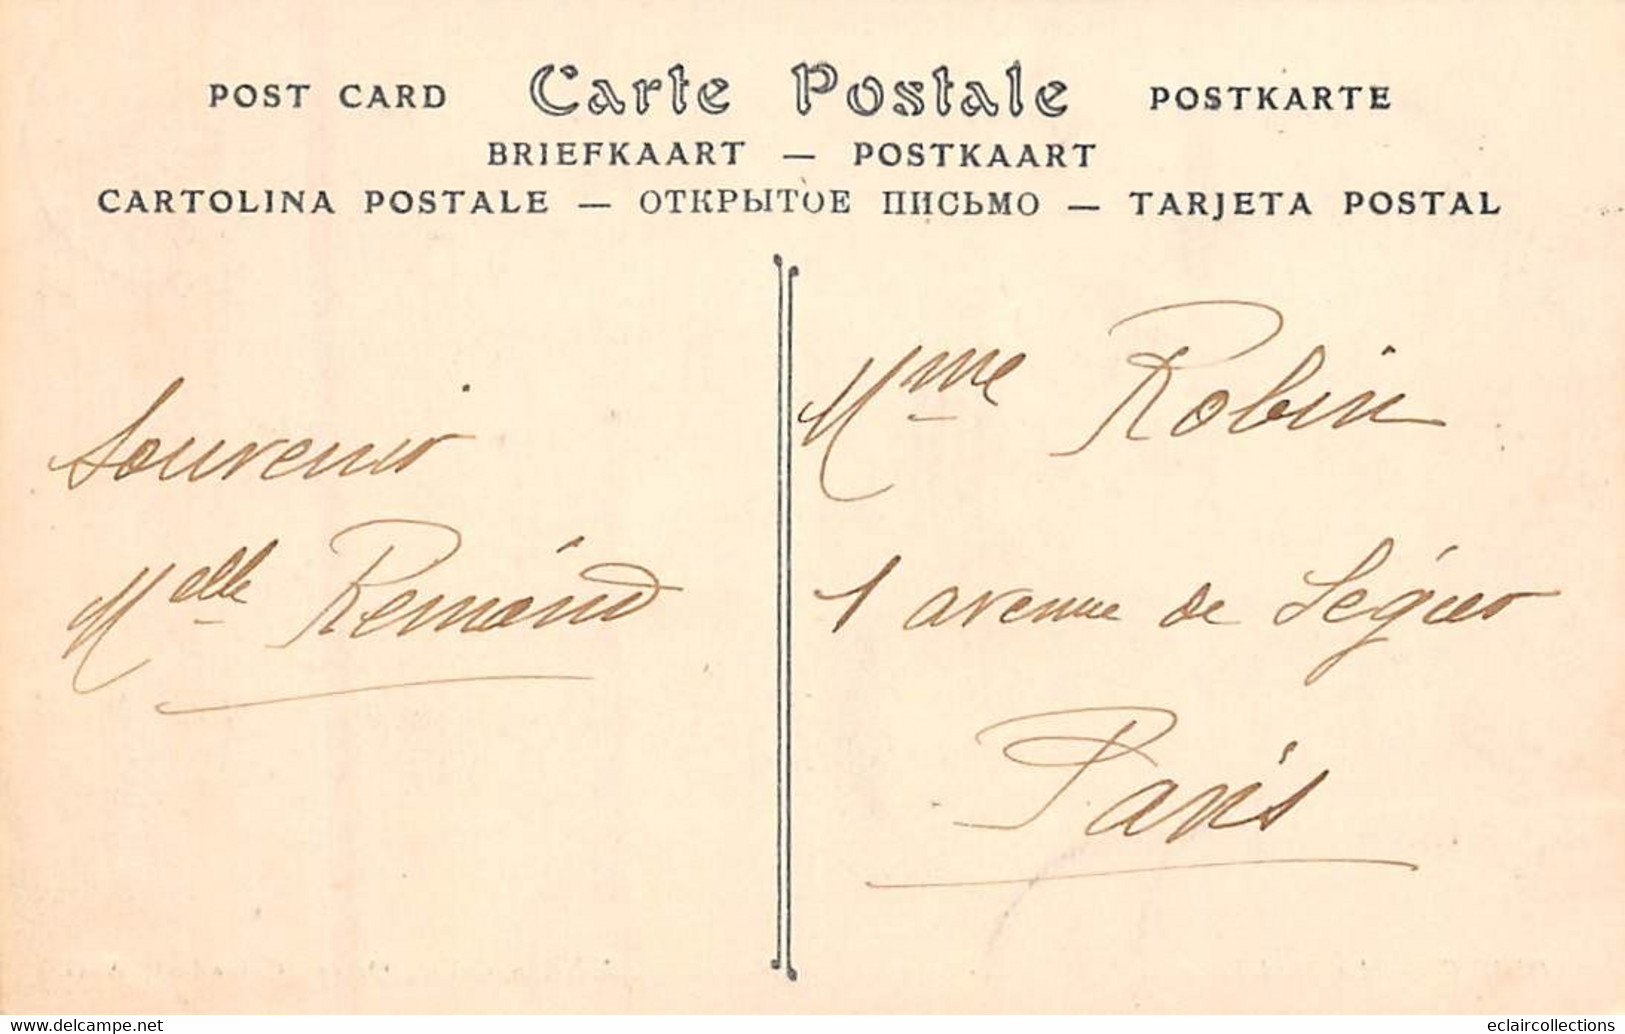 POST CARD Carte Postale POSTKARTE
BRIEFKAART — POSTKAART
CARTOLINA POSTALE — ОТКРЫТОЕ ПИСЬМО — TARJETA POSTAL
Souvenir
Melle Remónd
Mme Robin
1 avenue de Ségur
Paris
www.delcampe.net
eclaircollections